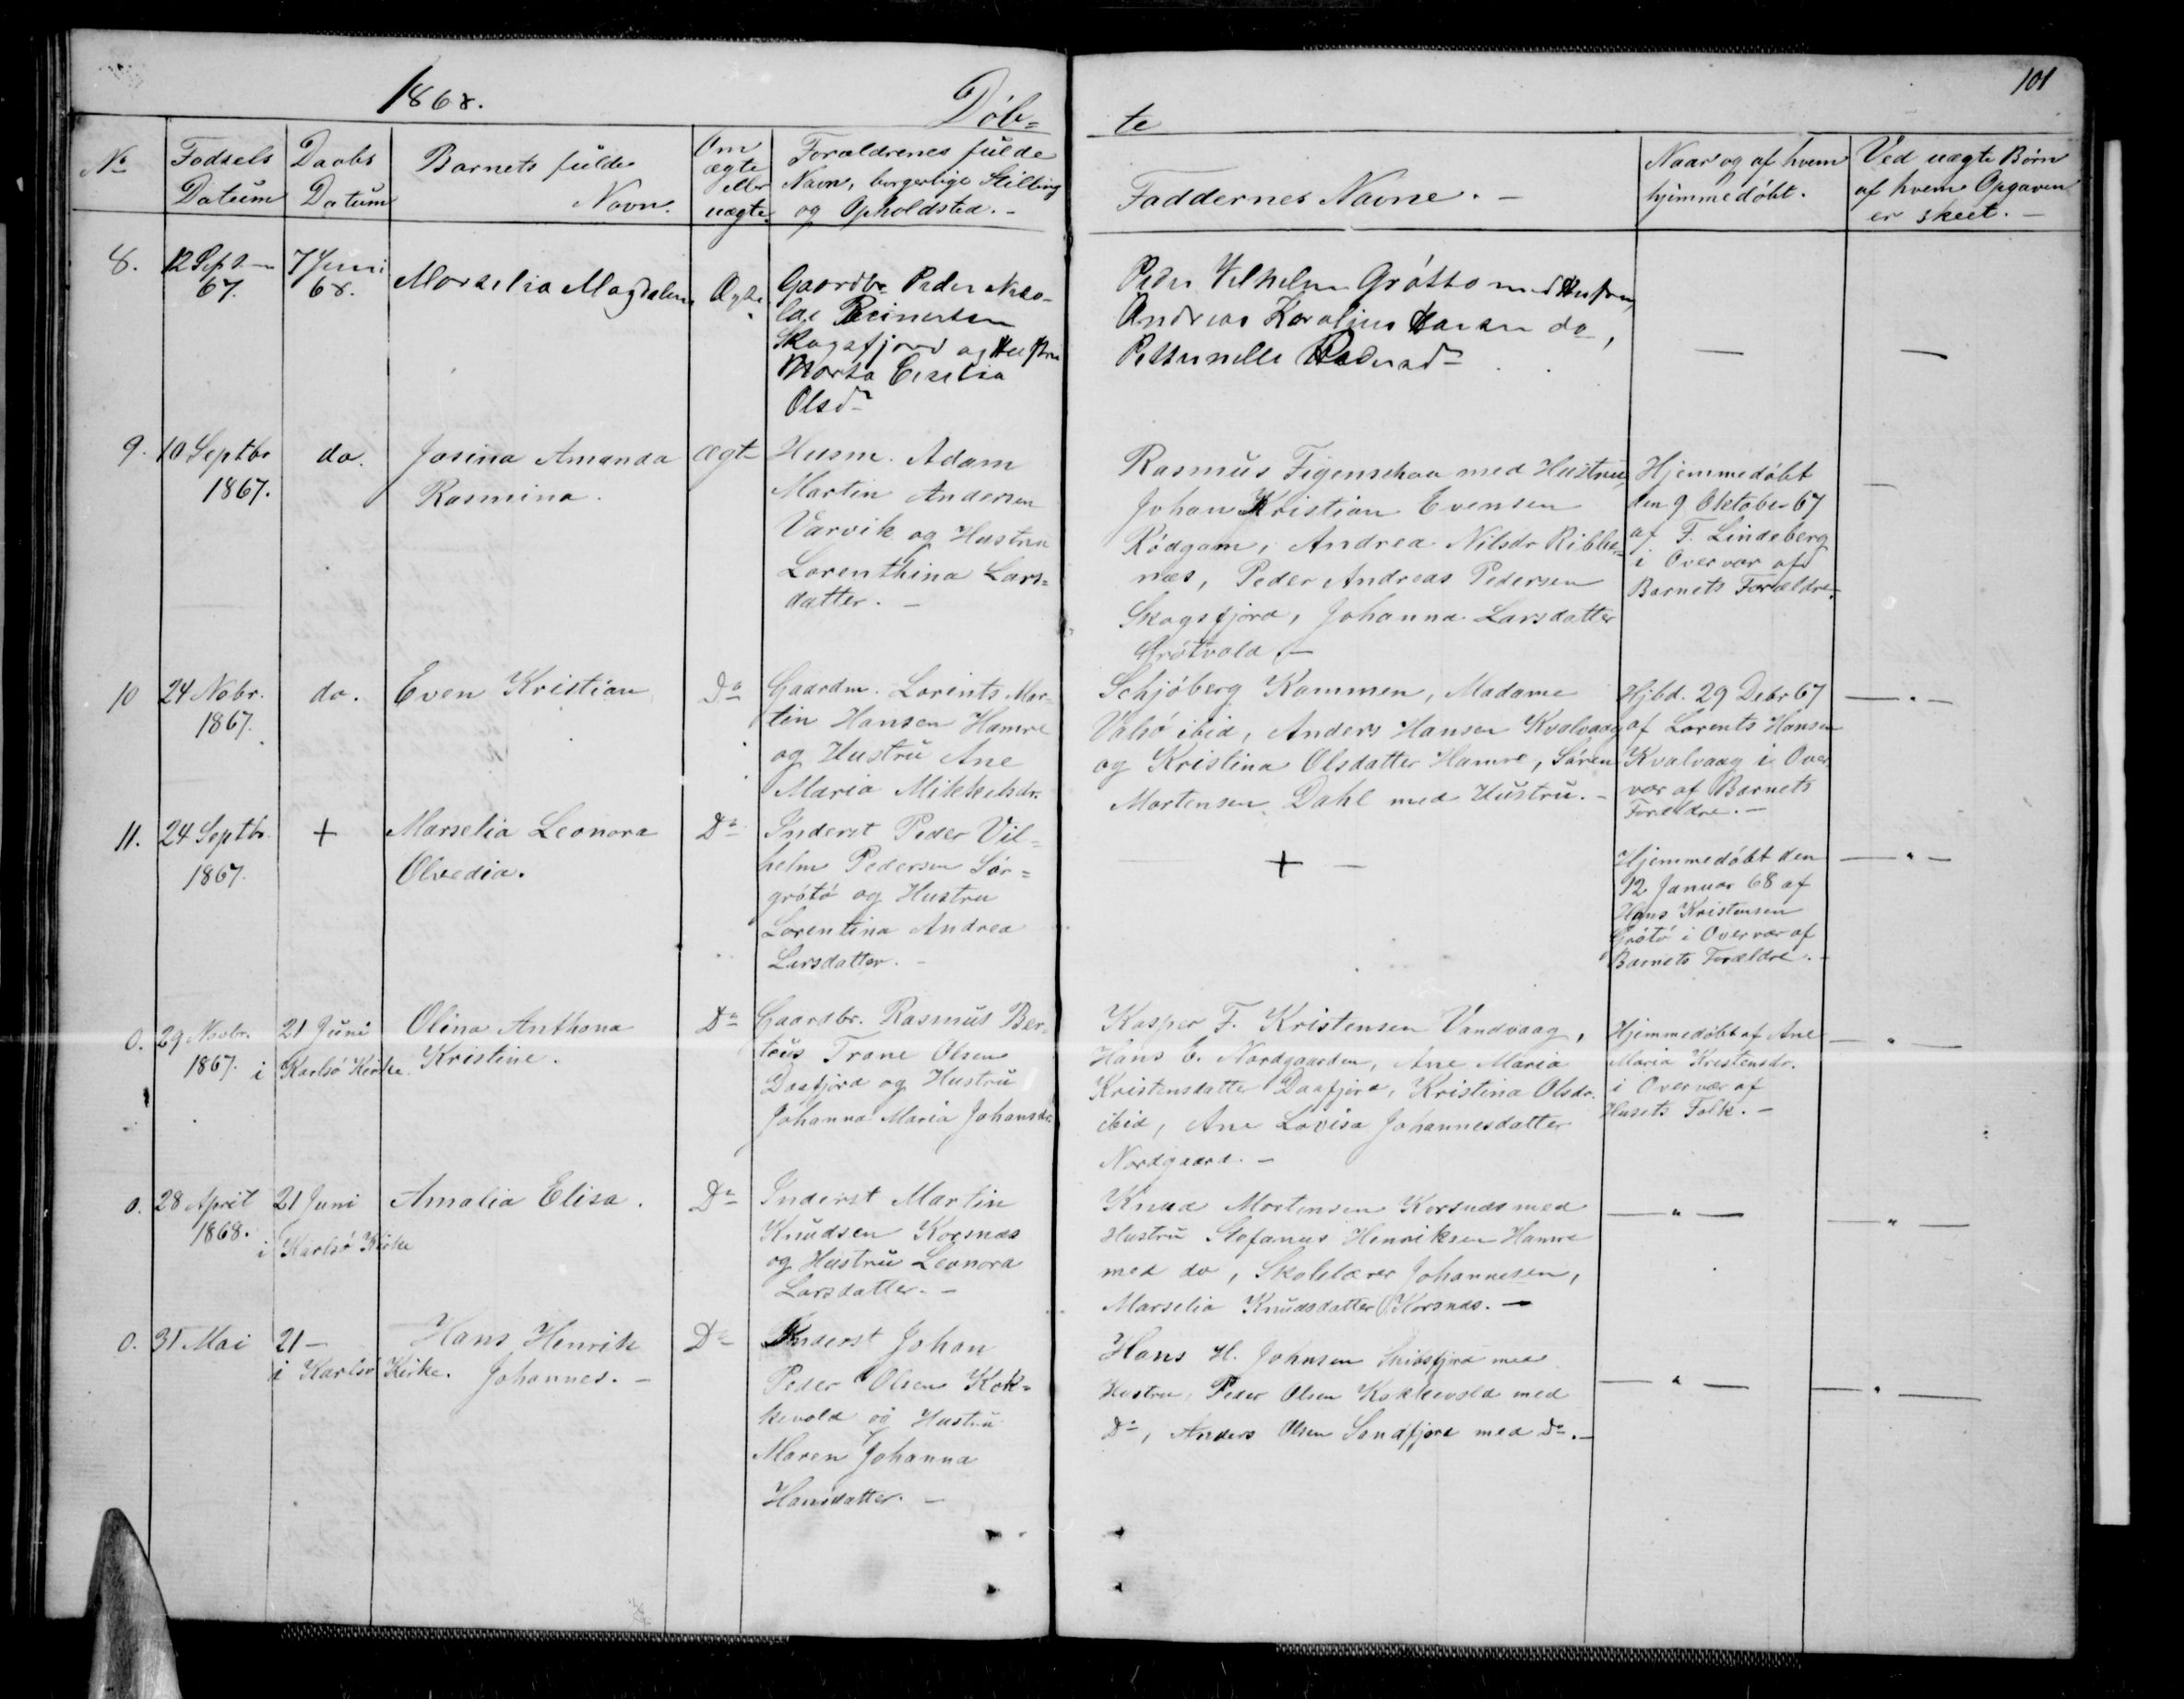 1868.
Døb=
te
101
No
Fødsels Datum
Daabs Datum
Barnets fulde Navn.
Om ægte eller uægte.
Forældrenes fulde Navn, borgerlige Stilling og Opholdsted. -
Faddernes Navne. -
Naar og af hvem hjemmedøbt.
Ved uægte Børn af hvem Opgaven er skeet. -
8.
12 Sept
67.
7 Juni
68.
Marselia Magdalena
Ægte
Gaardbr Peder Nico-
lai Reinertsen
Skogsfjord og Hustru
Marta Cecelia
Olsdr
Peder Vilhelm Grøttø med Hustru,
Andreas Karolius Hansen do,
Petternelle Pedersdr
—
—
9.
10 Septbr
1867.
do.
Josina Amanda
Rasmina.
ægt
Husm. Adam
Martin Andersen
Varvik og Hustru
Lorenthina Lars=
datter. -
Rasmus Figenschou med Hustru,
Johan Kristian Evensen
Rødgam, Andrea Nilsdr Ribbe=
næs, Peder Andreas Pedersen
Skogsfjord, Johanna Larsdatter
Grøtvold. -
Hjemmedøbt
den 9 Oktober 67
af F. Lindeberg
i Overvær af
Barnets Forældre.
—
10
24 Nobr.
1867.
do.
Even Kristian
Do
Gaardm. Lorents Mar-
tin Hansen Hamre
og Hustru Ane
Maria Mikkelsdr.
Schjøberg Kammen, Madame
Valsø ibid, Anders Hansen Kvalvaag
og Kristina Olsdatter Hamre, Søren
Mortensen Dahl med Hustru. -
Hjbd. 29 Debr 67
af Lorents Hansen
Kvalvaag i Over
vær af Barnets
Forældre. -
— " —
11.
24 Septbr
1867.
+
Marselia Leonora
Olvedia.
Do
Inderst Peder Vil=
helm Pedersen Sør=
grøtø og Hustru
Lorentina Andrea
Larsdatter. -
+ —
Hjemmedøbt den
12 Januar 68 af
Hans Kristensen
Grøtø i Overvær af
Barnets Forældre. -
— " —
0.
29 Novbr.
1867.
21 Juni
i Karlsø Kirke
Olina Anthona
Kristine.
Do
Gaardbr. Rasmus Ber-
teus Trane Olsen
Daafjord og Hustru
Johanna Maria Johansdr.
Kasper F. Kristensen Vandvaag,
Hans E. Nordgaarden, Ane Maria
Kristensdatter Daafjord, Kristina Olsdr.
ibid, Ane Lovisa Johannesdatter
Nordgaard. -
Hjemmedøbt af Ane
Maria Kristensdr.
i Overvær af
Husets Folk. -
— " —
0.
28 April
1868.
21 Juni
i Karlsø Kirke
Amalia Elisa.
Do
Inderst Martin
Knudsen Korsnæs
og Hustru Leonora
Larsdatter. -
Knud Mortensen Korsnæs med
Hustru Stefanus Henriksen Hamre
med do, Skolelærer Johannesen,
Marselia Knudsdatter Korsnæs. -
— " —
— " —
0.
31 Mai
21 -
i Karlsø Kirke.
Hans Henrik
Johannes. -
Do
Inderst Johan
Peder Olsen Kok=
kevold og Hustru
Maren Johanna
Hansdatter. -
Hans H. Johnsen Skibsfjord med
Hustru, Peder Olsen Kokkevold med
Do, Anders Olsen Sandfjord med Do. -
— " —
— " —